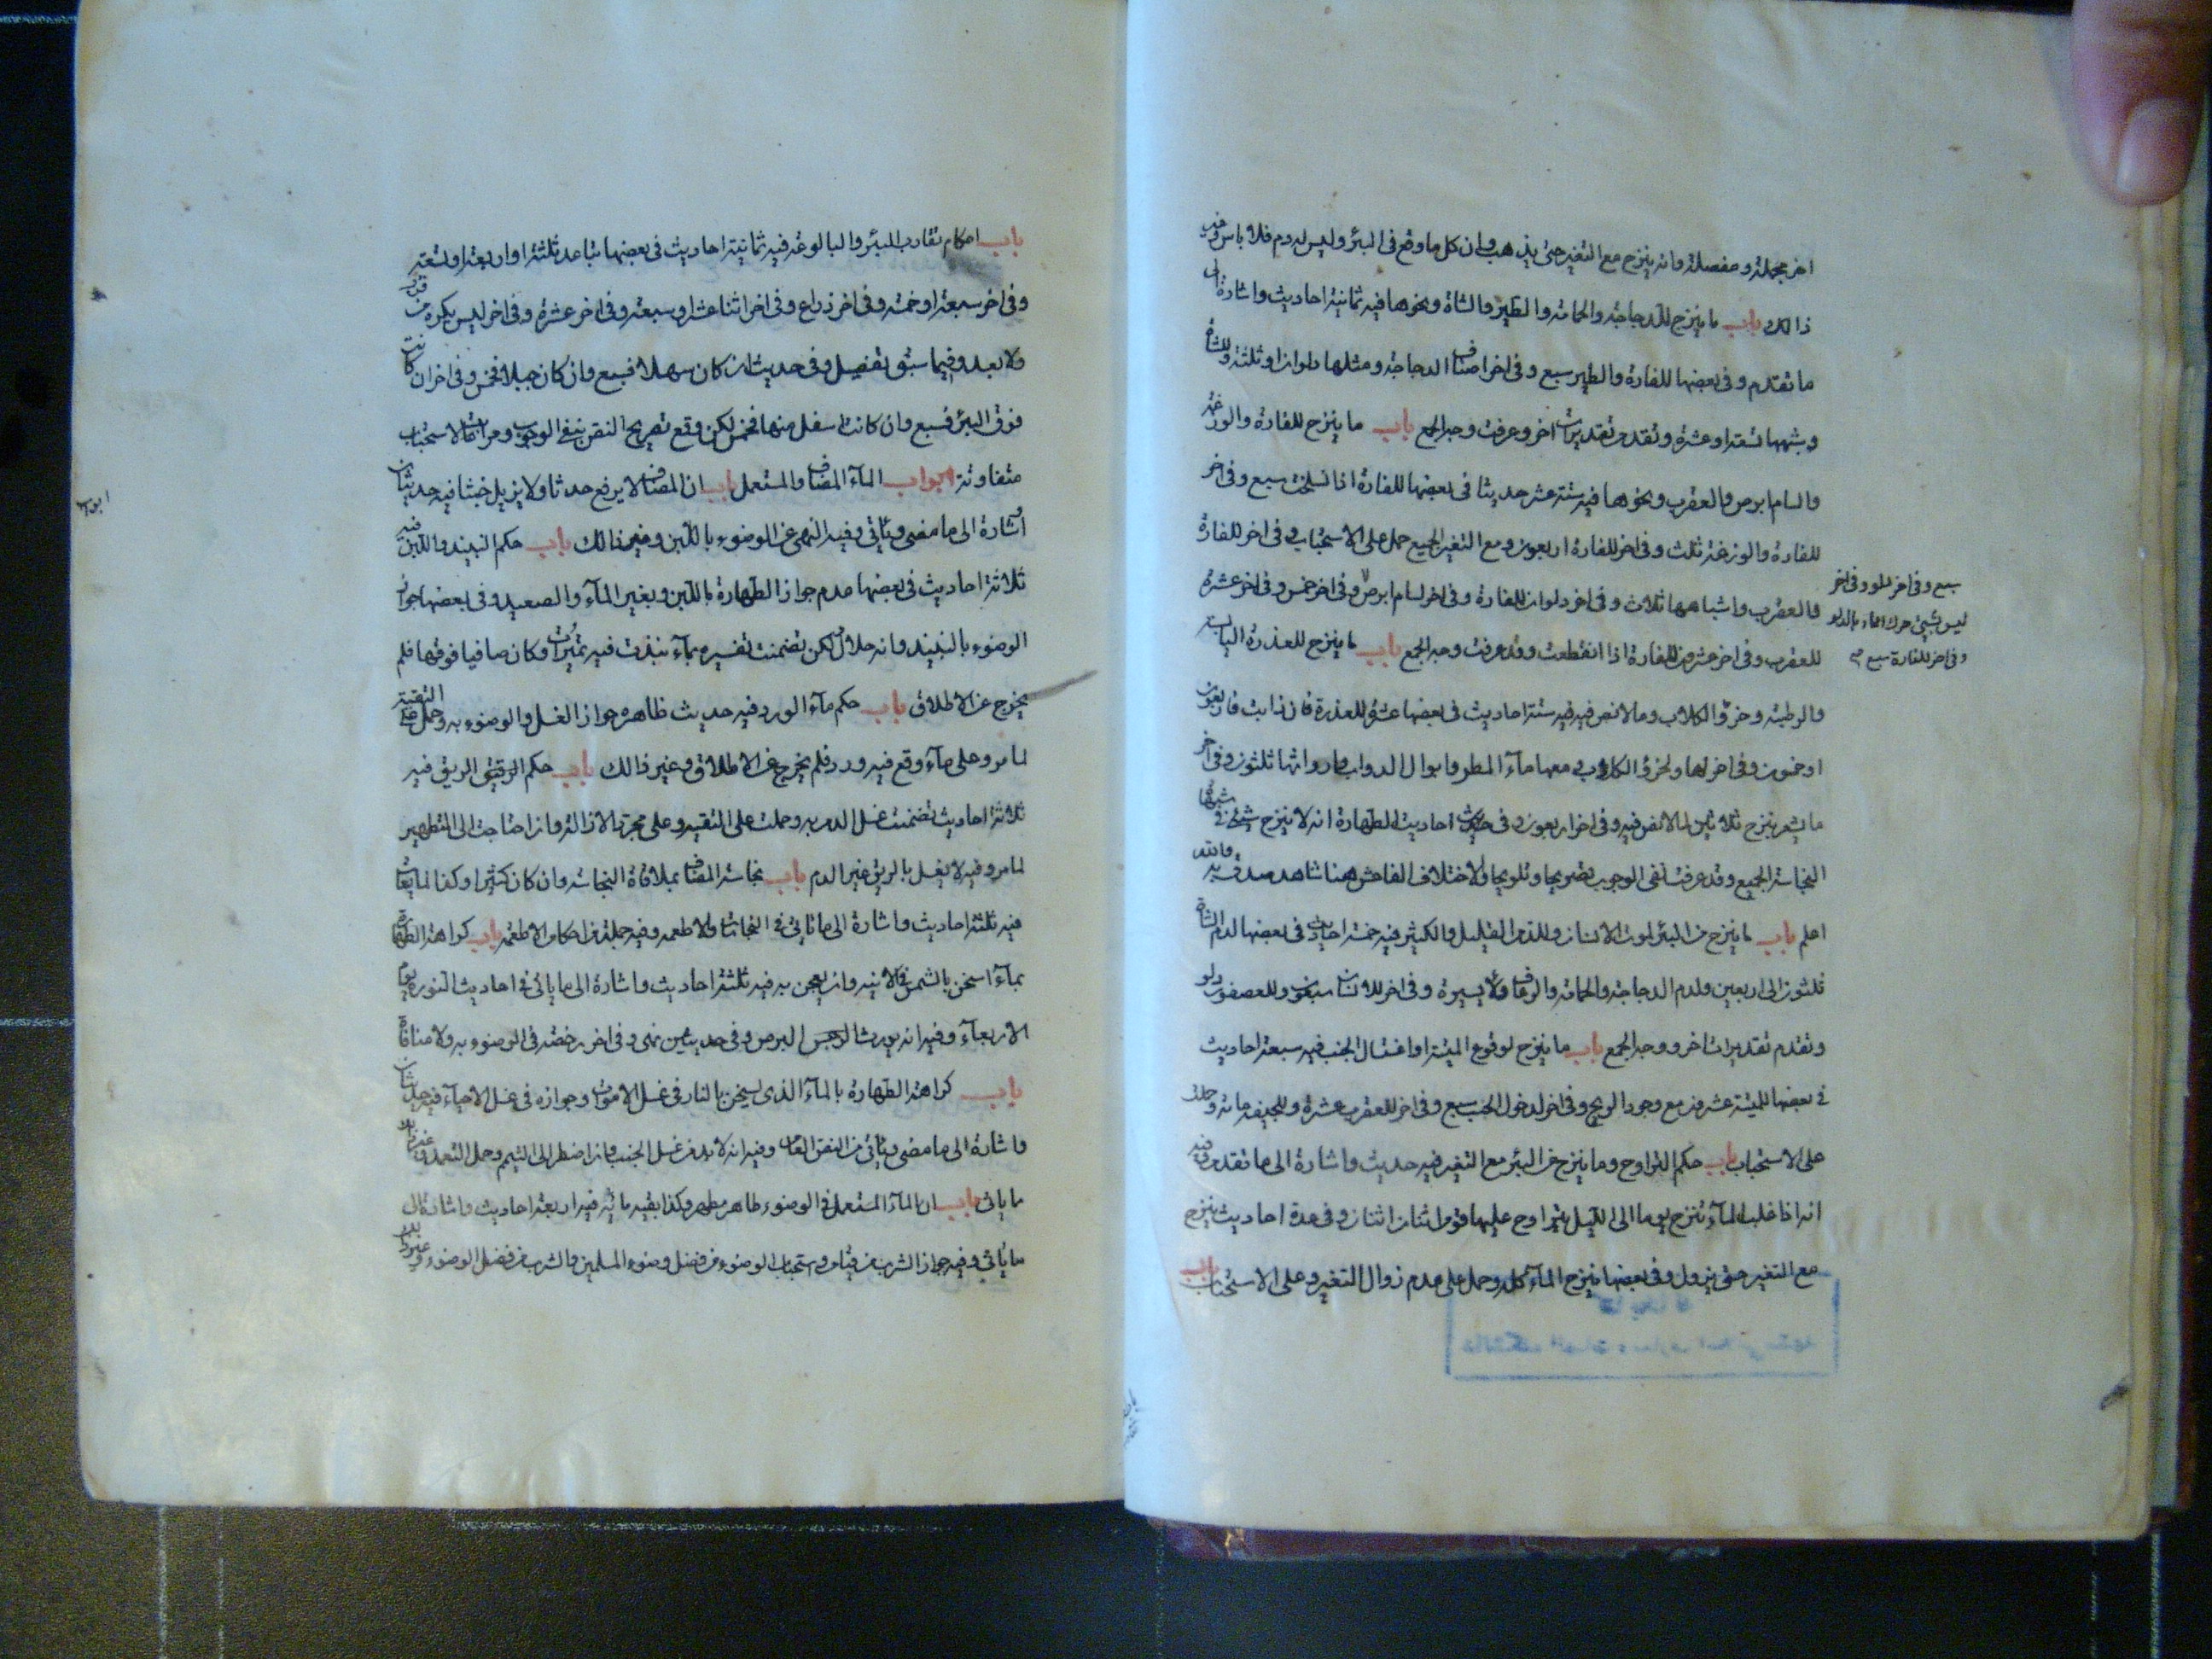 اخر مجملة ومفصلة وانه ينزح مع التغير حتى يذهب وان كل ما وقع فى البئر وليس له دم فلا باس وفيه
ذالك باب ما ينزح للدجاجة والحمامة والطير والشاة ونحوها فيه ثمانية احاديث واشارة الى
ما تقدم وفى بعضها للفارة والطير سبع وفى اخر اصناف الدجاجة ومثلها دلوان او ثلثة وللشاة
وشبهها تسعة او عشرة وتقدم تقديرات اخر وعرفت وجه الجمع باب ما ينزح للفارة والوزغة
والسام ابرص والعقرب ونحوها فيه ستة عشر حديثا فى بعضها للفارة اذا انسلخت سبع وفى اخر
للفارة والوزغة ثلث وفى اخر للفارة اربعون ومع التغير الجميع حمل على الاستحباب وفى اخر للفارة
سبع وفى اخر دلو وفى اخر
ليس بشيئ حرك الماء بالدلو
وفى اخر للفارة سبع صح
والعقرب واشباهها ثلاث وفى اخر دلوان للفارة وفى اخر لسام ابرص وفى اخر خمس وفى اخر عشرة
للعقرب وفى اخر عشرون للفارة اذا انقطعت وقد عرفت وجه الجمع باب ما ينزح للعذرة اليابسة
والرطبة وخرؤ الكلاب وما لا نص فيه فيه ستة احاديث فى بعضها عشر للعذرة فان ذابت فاربعون
او خمسون وفى اخر لها ولخرؤ الكلاب ومعها ماء المطر وابوال الدواب وارواثها ثلثون وفى اخر
ما يشعر بنزح ثلاثين لما لا نص فيه وفى اخر اربعون وفى حديث احاديث الطهارة انه لا ينزح شيئ فى شبهها
النجاسة الجميع وقد عرفت نفى الوجوب تصريحا وتلويحا والاختلاف الفاحش هنا شاهد صدق به والله
اعلم باب ما ينزح من البئر لموت الانسان وللدم القليل والكثير فيه خمسة احاديث فى بعضها لدم الشاة
ثلثون الى اربعين ولدم الدجاجة والحمامة والرعاف دلاء يسيرة وفى اخر للانسان سبعون وللعصفور دلو
وتقدم تقديرات اخر ووجه الجمع باب ما ينزح لوقوع الميتة او اغتسال الجنب فيه سبعة احاديث
فى بعضها للميتة عشرون مع وجود الريح وفى اخر لدخول الجنب سبع وفى اخر للعقرب عشرة وللجيفة مائة وحملت
على الاستحباب باب حكم التراوح وما ينزح من البئر مع التغير فيه حديث واشارة الى ما تقدم وفيه
انه اذا غلب الماء ينزح يوما الى الليل يتراوح عليها قوم اثنان اثنان وفى عدة احاديث ينزح
مع التغير حتى يزول وفى بعضها ينزح الماء كله وحمل على عدم زوال التغير وعلى الاستحباب باب
باب احكام تقارب البئر والبالوعة فيه ثمانية احاديث فى بعضها تباعد ثلثة او اربعة او تسعة
وفى اخر سبعة او خمسة وفى اخر ذراع وفى اخر اثنا عشر او سبعة وفى اخر عشرة وفى اخر ليس يكره من قرب
ولا بعد وفيما سبق تفصيل وفى حديث ان كان سهلا فسبع وان كان جبلا فخمس وفى اخر ان كانت
فوق البئر فسبع وان كانت اسفل منها فخمس لكن وقع تصريح النص بنفى الوجوب ومراتب الاستحباب
متفاوتة ابواب الماء المضاف والمستعمل باب ان المضاف لا يرفع حدثا ولا يزيل خبثا فيه حديثان
ابواب
واشارة الى ما مضى وياتى وفيه النهى عن الوضوء باللبن وغير ذالك باب حكم النبيذ واللبن فيه
ثلاثة احاديث فى بعضها عدم جواز الطهارة باللبن وبغير الماء والصعيد وفى بعضها جواز
الوضوء بالنبيذ وانه حلال لكن تضمنت تفسيره بماء نبذت فيه تميرات وكان صافيا فوقها فلم
يخرج عن الاطلاق باب حكم ماء الورد فيه حديث ظاهره جواز الغسل والوضوء به وحمل على التقية
لما مر وعلى ماء وقع فيه ورد فلم يخرج عن الاطلاق وغير ذالك باب حكم الريق فيه
ثلاثة احاديث تضمنت غسل الدم به وحملت على التقية وعلى مجرد الازالة وان احتاجت الى التطهير
لما مر وفيه لا يغسل بالريق غير الدم باب نجاسة المضاف بملاقاة النجاسة وان كان كثيرا وكذا المايعات
فيه ثلثة احاديث واشارة الى ما ياتى فى النجاسات والاطعمة وفيه جملة من احكام الاطعمة باب كراهة الطهارة
بماء اسخن بالشمس فى الانية وان يعجن به فيه ثلثة احاديث واشارة الى ما ياتى فى احاديث النورة يوم
الاربعاء وفيه انه يورث البرص وفى حديثين نهى وفى اخر رخصة فى الوضوء به ولا منافاة
باب كراهة الطهارة بالماء الذى يسخن بالنار فى غسل الاموات وجوازه فى غسل الاحياء فيه حديثان
واشارة الى ما مضى وياتى من النص العام وفيه انه لا بد من غسل الجنب وان اضطر الى التيمم وحمل التعمد وغير ذالك
ما ياتى باب ان الماء المستعمل فى الوضوء طاهر مطهر وكذا بقية مائه فيه اربعة احاديث واشارة الى
ما ياتى وفيه جواز الشرب من قيام واستحباب الوضوء من فضل وضوء المسلمين والشرب من فضل الوضوء وغير ذالك